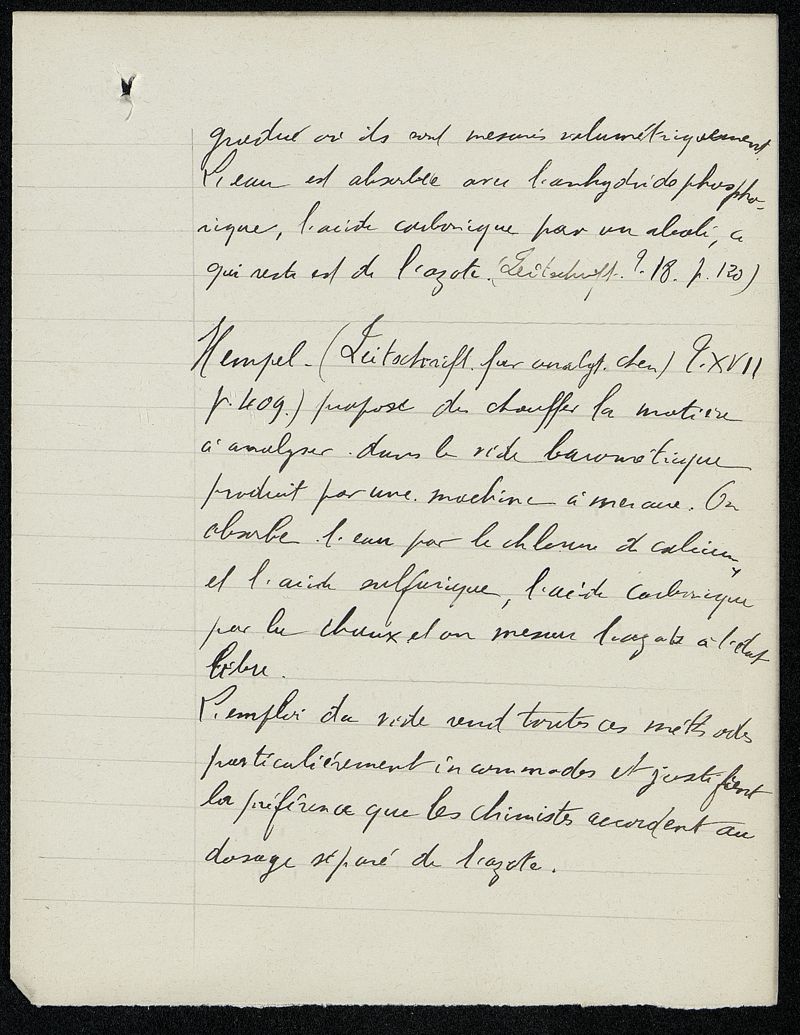 gradué où ils sont mesurés volumétriquement.
L'eau est absorbée avec l'anhydride phospho-
rique, l'acide carbonique par un alcali, ce
qui reste est de l'azote. (Zeitschrift. T. 18. p. 120)
Hempel - (Zeitschrift. fur analyt. chem) T. XVII
p. 409.) propose de chauffer la matière
à analyser dans le vide barométrique
produit par une machine à mercure. On
absorbe l'eau par le chlorure de calcium
et l'acide sulfurique, l'acide carbonique
par la chaux, et on mesure l'azote à l'état
libre.
L'emploi du vide rend toutes ces méthodes
particulièrement incommodes et justifient
la préférence que les chimistes accordent au
dosage séparé de l'azote.